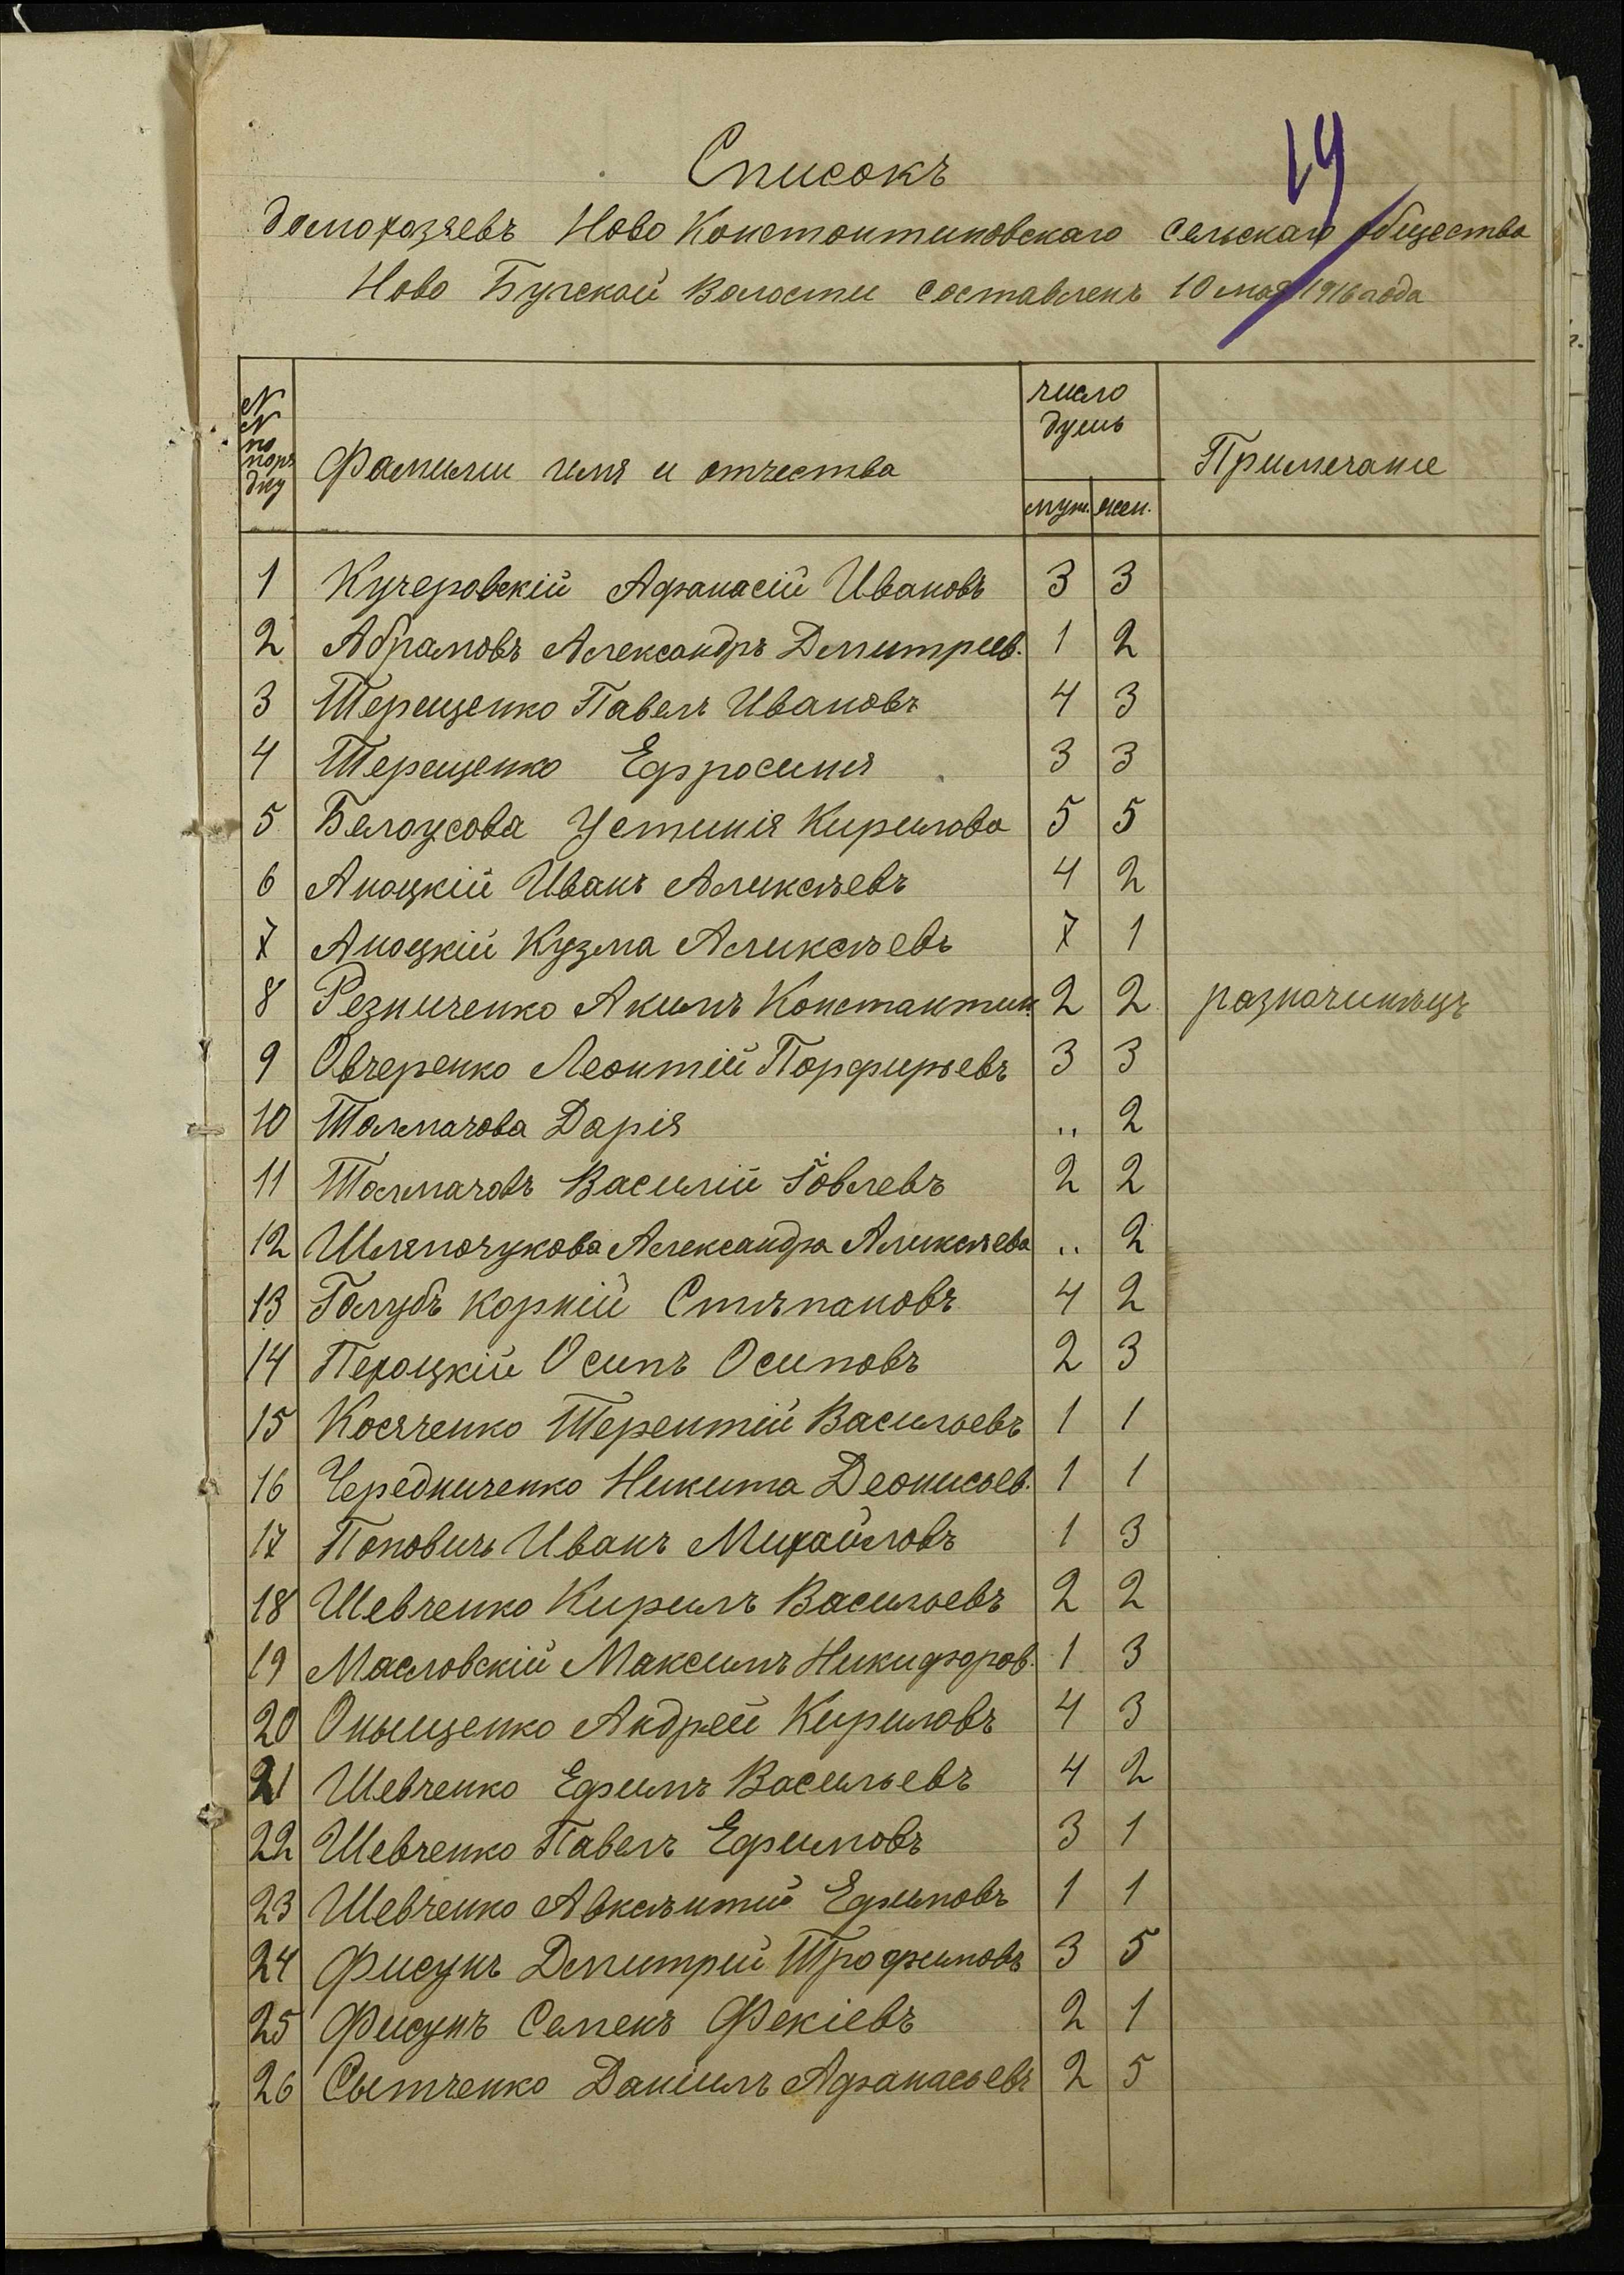 19
Списокъ
домохозяевъ Ново Константиновскаго сельскаго общества
Ново Бугской Волости составленъ 10 мая 1916 года
N N по поряд дку Фамилии имя и отчества число душъ Примечание
муж. жен.
1 Кучеровскій Афанасій Ивановъ 3 3
2 Абрамовъ Александръ Дмитриев. 1 2
3 Терещенко Павелъ Ивановъ 4 3
4 Терещенко Ефросиния 3 3
5 Белоусова Устинія Кирилова 5 5
6 Аноцкій Иванъ Аликсѣевъ 4 2
7 Аноцкій Кузма Аликсѣевъ 7 1
8 Резниченко Акимъ Константин. 2 2 разночинѣцъ
9 Овчеренко Леонтій Порфирьевъ 3 3
10 Толмачова Дарія .. 2
11 Толмачовъ Василій Іовлевъ 2 2
12 Шляпочукова Александра Алиksѣева .. 2
13 Голубъ Корній Стѣпановъ 4 2
14 Пехоцкій Осипъ Осиповъ 2 3
15 Косяченко Терентій Васильевъ 1 1
16 Чередниченко Никита Деонисьев. 1 1
17 Поповичъ Иванъ Михайловъ 1 3
18 Шевченко Кирилъ Васильевъ 2 2
19 Масловскій Максимъ Никифоров. 1 3
20 Оныщенко Андрей Кириловъ 4 3
21 Шевченко Ефимъ Васильевъ 4 2
22 Шевченко Павелъ Ефимовъ 3 1
23 Шевченко Авксѣнтий Ефимовъ 1 1
24 Фисунъ Дмитрий Трофимовъ 3 5
25 Фисунъ Семенъ Фекіевъ 2 1
26 Сытченко Даниилъ Афанасьевъ 2 5